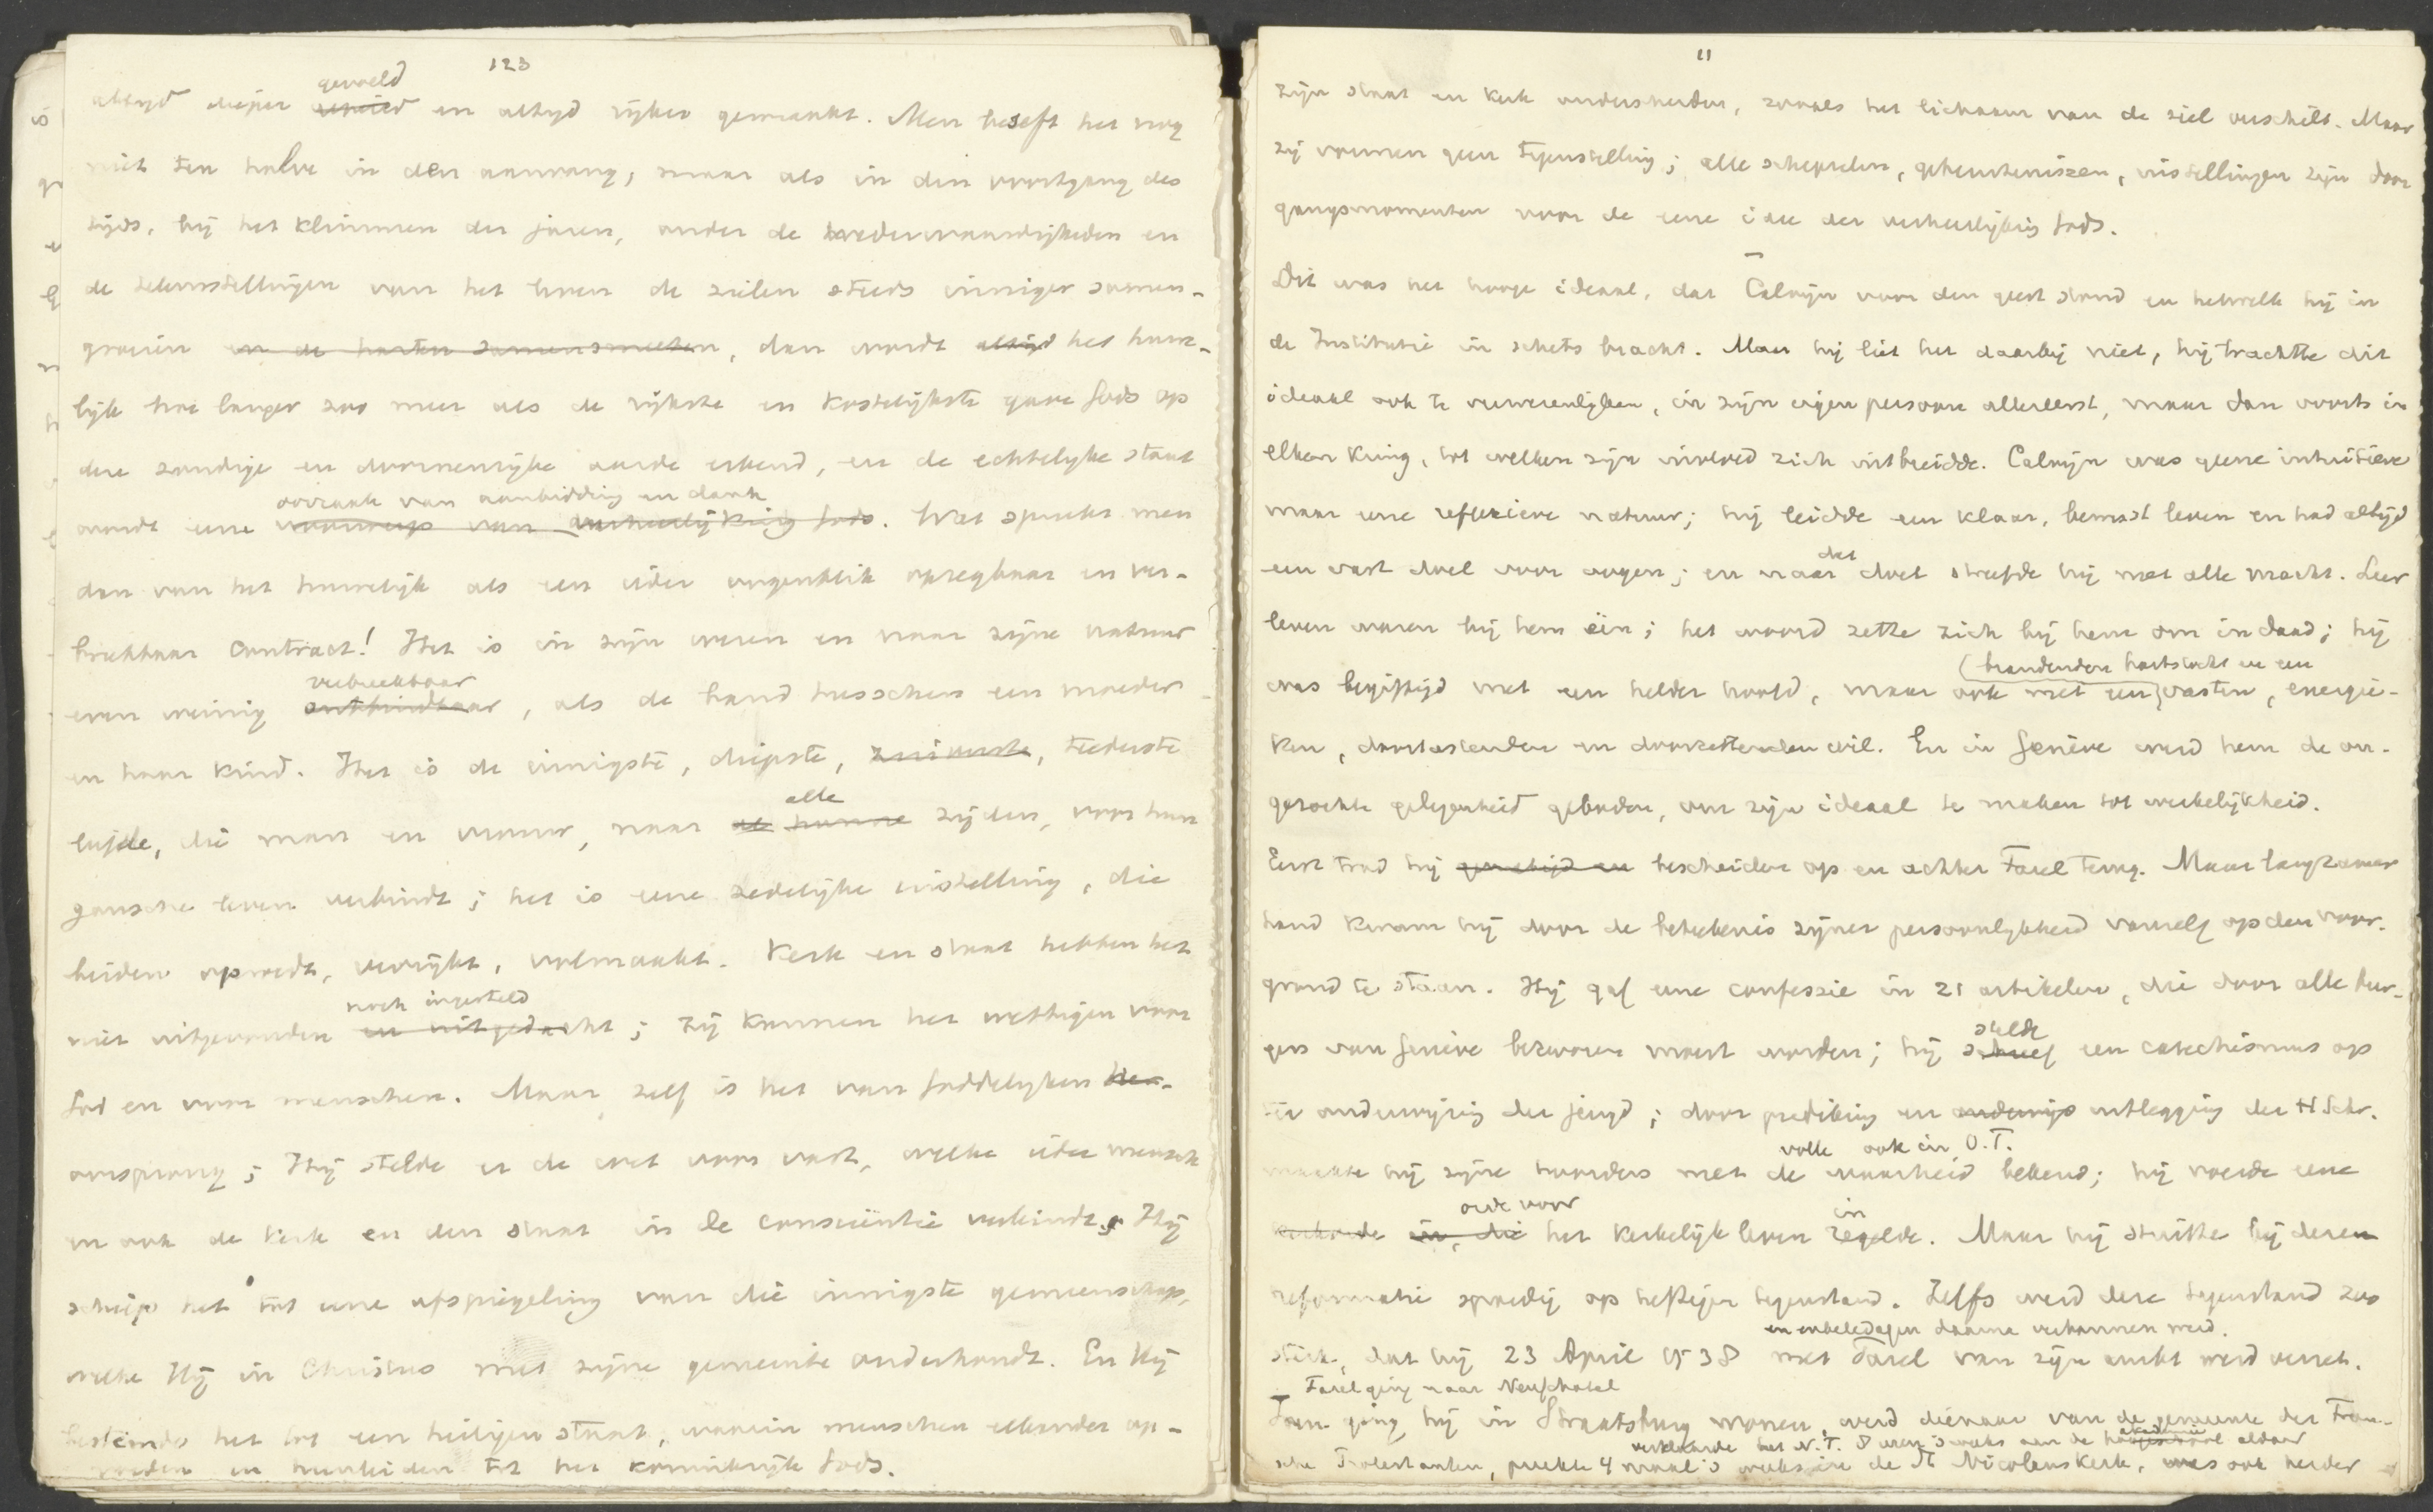 123
gevoeld
altijd dieper en altijd rijker gemaakt. Men beseft het nog
niet ten halve in den aanvang; maar als in den voortgang des
tijds, bij het klimmen der jaren, onder de wederwaardigheden en
de teleurstellingen van het leven de zielen steeds inniger samen-
groeien en de harten samensmelten, dan wordt altijd het huwe-
lijk hoe langer zoo meer als de rijkste en kostelijkste gave Gods op
deze zondige en doornenrijke aarde erkend, en de echtelijke staat
oorzaak van aanbidding en dank
wordt eene van verheerlijking Gods. Wat spreekt men
dan van het huwelijk als een ieder oogenblik opzegbaar en ver-
breekbaar contract! Het is in zijn wezen en naar zijne natuur
verbreekbaar
even weinig ontbindbaar, als de band tusschen een moeder
en haar kind. Het is de innigste, diepste, teederste
alle
liefde, die man en vrouw, naar de hunne zijden, voor hun
gansche leven verbindt; het is eene zedelijke instelling, die
beiden opvoedt, verrijkt, volmaakt. Kerk en staat hebben het
noch ingesteld
niet uitgevonden en uitgedacht; zij kunnen het wettigen voor
God en voor menschen. Maar zelf is het van Goddelijken
oorsprong; Hij stelde er de wet voor vast, welke ieder mensch
en ook de kerk en den staat in de consciëntie verbindt; Hij
schiep het tot eene afspiegeling van die innigste gemeenschap,
welke Hij in Christus met zijne gemeente onderhoudt. En Hij
bestemde het tot een heiligen staat, waarin menschen elkander op-
voeden en toebereiden tot het koninkrijk Gods.
11
zijn staat en kerk onderscheiden, zooals het lichaam van de ziel verschilt. Maar
zij vormen geen tegenstelling; alle schepselen, gebeurtenissen, instellingen zijn door
gangsmomenten voor de eene idee der verheerlijking Gods.
Dit was het hooge ideaal, dat Calvijn voor den geest stond en hetwelk hij in
de Institutie in schets bracht. Maar hij liet het daarbij niet, hij trachtte dit
ideaal ook te verwezenlijken, in zijn eigen persoon allereerst, maar dan voorts in
elken kring, tot welken zijn invloed zich uitbreidde. Calvijn was geene intuïtieve
maar eene reflexieve natuur; hij leidde een klaar, bewust leven en had altijd
dat
een vast doel voor oogen; en naar doel streefde hij met alle macht. Leer
leven waren bij hem één; het woord zette zich bij hem om in daad; hij
(brandenden hartstocht en een
was begiftigd met een helder hoofd, maar ook met een vasten, energie-
ken, doortastenden en doorzettenden wil. En in Genève werd hem de on-
gezochte gelegenheid geboden, om zijn ideaal te maken tot werkelijkheid.
Eerst trad hij bescheiden op en achter Farel terug. Maar langzamer
hand kwam hij door de beteekenis zijner persoonlijkheid vanzelf op den voor-
grond te staan. Hij gaf eene confessie in 21 artikelen, die door alle bur-
stelde
gers van Genève bezworen moest worden; hij schreef een catechismus op
ter onderwijzing der jeugd; door prediking en onderwijs uitlegging der H Schr.
volle ook in O.T.
maakte hij zijne hoorders met de waarheid bekend; hij voerde eene
orde voor in
kerkorde in, die het kerkelijk leven regelde. Maar hij stuitte bij dezen
reformatie spoedig op heftigen tegenstand. Zelfs werd deze tegenstand zoo
en enkele dagen daarna verbannen werd.
sterk, dat hij 23 April 1538 met Farel van zijn ambt werd ontzet.
Farel ging naar Neufchatel
Toen ging hij in Straatsburg wonen, werd dienaar van de gemeente der Fran-
verklaarde het N.T. 3 uren 's weeks aan de hoogeschool aldaar
akademie
sche Protestanten, preekte 4 maal 's weeks in de St Nicolaus Kerk, was ook herder